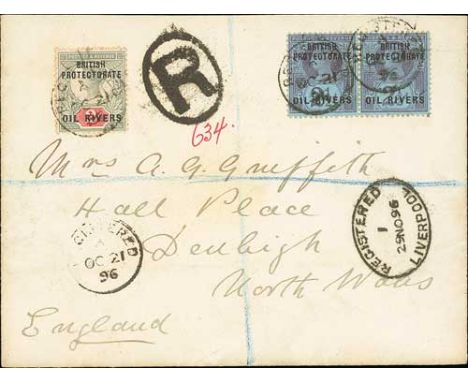 BRITISH
PROTECTORATE
OIL RIVERS
R
BRITISH
PROTECTORATE
OIL RIVERS
BRITISH
PROTECTORATE
OIL RIVERS
OC 21
96
634.
Mrs A. G. Griffith
Hall Place
Denbigh
North Wales
England
REGISTERED
OC 21
96
REGISTERED LIVERPOOL
1
29NO96